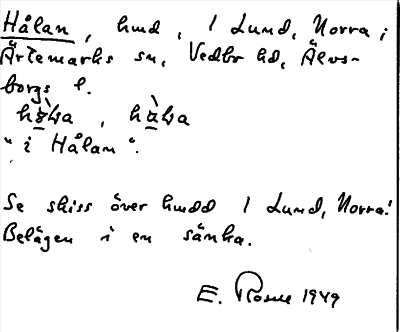 Hålan, hmd, 1 Lund, Norra i
Ärtemarks sn, Vedbo hd, Älvs-
borgs l.
"i Hålan".
Se skiss över hmdd 1 Lund, Norra!
Belägen i en sänka.
E. Rosell 1949